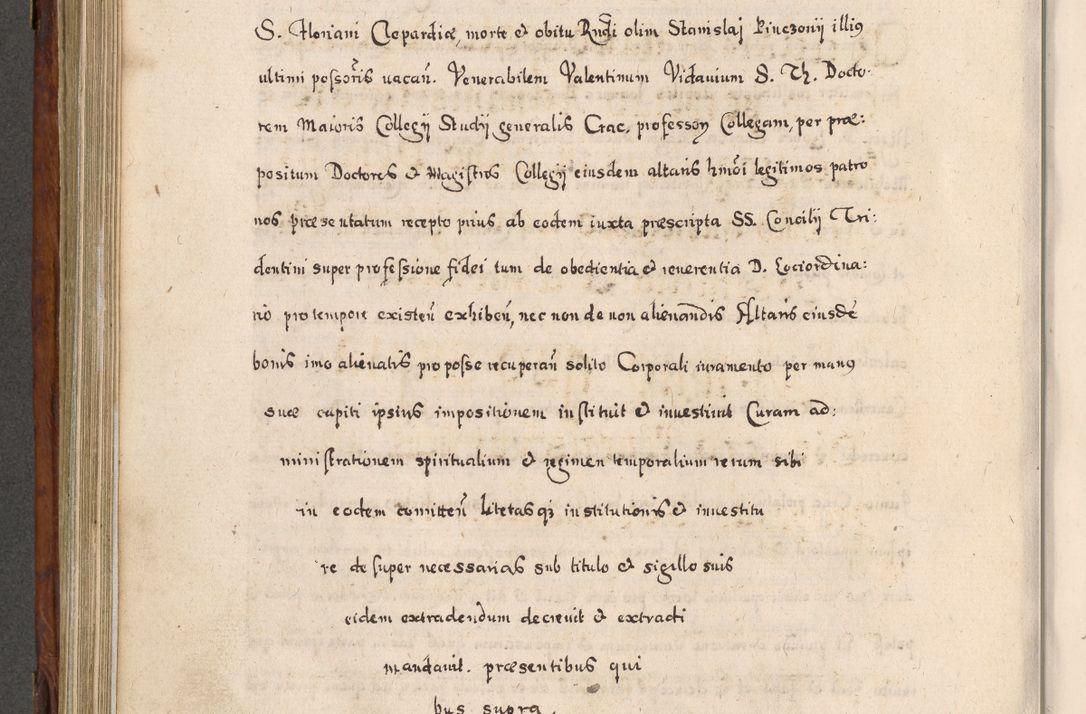 S. Floriani Clepardiæ, morte et obitu Rndi olim Stanislaj Pinczonij illi9
ultimi possoris vacan̄. Venerabilem Valentinum Vidavium S. Th. Docto-
rem Maioris Collegij Studij generalis Crac. professorem Collegam, per præ:
positum Doctores et Magistros Collegij eiusdem altaris hmõi legitimos patro
nos præsentatum recepto prius ab eodem iuxta præscripta SS. Concilij Tri:
dentini super professione fidei tum de obedientia et reverentia D. Lociordina:
rio pro tempore existen̄ exhiben̄, nec non de non alienandis Altaris eiusdē
bonis imo alienatis pro posse recuperan̄ solito Corporali iuramento per man9
suæ capiti ipsius impositionem instituit et investivit Curam ad:
ministrationem spiritualium et regimen temporalium rerum sibi
in eodem committen̄ literasq3 institutionis et investitu
re desuper necessarias sub titulo et sigillo suis
eidem extradendum decrevit et extradi
mandavit. præsentibus qui
bus supra.